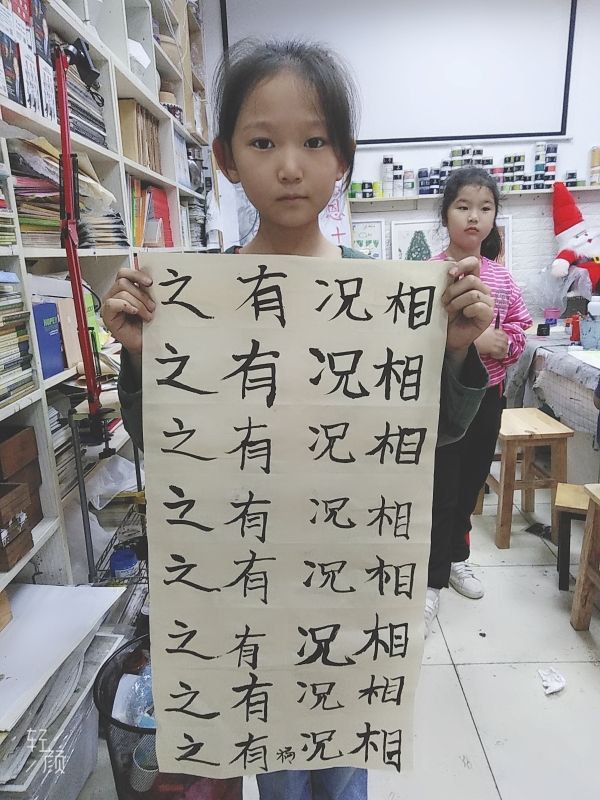 相相相相相相相相
况况况况况况况况
有有有有有有有有
之之之之之之之之
轻颜